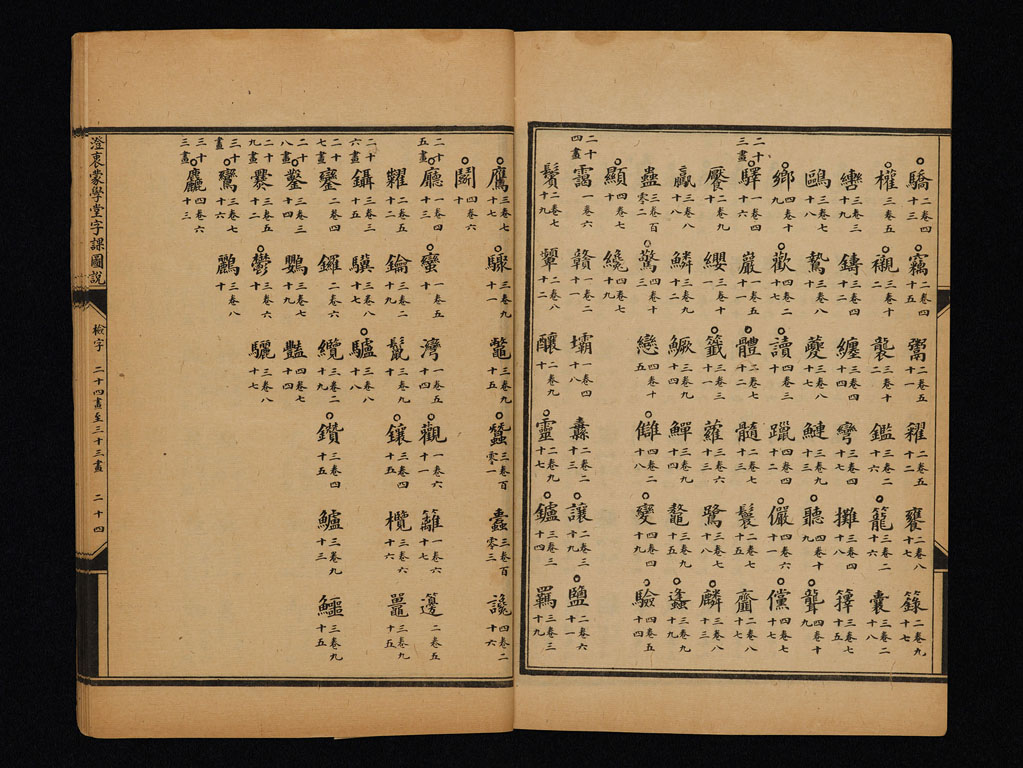 驕二卷四十三 竊二卷四十五 鬻二卷五十一 糴二卷五十二 饔二卷八十七 籙二卷九十七
權三卷五 襯三卷十二 襲 鑑三卷二十六 籠三卷二十六 囊三卷二十八
轡三卷三十九 鑄三卷四十二 纏三卷四十四 彎三卷四十七 攤三卷四十八 籜三卷七十五
鷗三卷七十八 鷙三卷八十 夔三卷八十 鰱三卷九十三 聽四卷十 聾四卷十九
嚮四卷十 歡四卷十七 讀四卷二十 躐四卷三十 儼四卷六十一 儻四卷七十
二十三畫 驛一卷四十六 巖一卷五十一 體二卷十二 髓二卷十三 鬟二卷七十五 齏二卷八十七
饜二卷八十九 纓二卷九十 籤三卷二十一 蘿三卷六十三 鷺三卷七十八 麟三卷八十三
鸁三卷八十八 鱗三卷九十二 鱖三卷九十三 鱓三卷九十四 鼇三卷九十五 䗬三卷九十九
蠱三卷百零二 驚四卷十三 戀四卷十五 讎四卷二十八 變四卷五十 驗四卷五十四
顯四卷七十 纔四卷七十九
二十四畫 靄一卷六 贛一卷二十一 壩一卷四十八 纛二卷二十三 讓二卷三十九 鹽二卷六十一
鬢二卷七十九 顰二卷八十二 釀二卷九十 靈二卷九十七 鑪三卷三十四 羈三卷三十九
鷹三卷七十七 驟三卷九十一 鼈三卷九十五 蠶三卷百零一 蠹三卷百零三 讒四卷二十六
鬭四卷六十
二十五畫 廳一卷四十三 蠻一卷五十 灣一卷五十四 觀一卷六十一 籬一卷六十七 籩二卷五
糶二卷五十二 鑰三卷二十 鬣三卷九十 鑲三卷四十五 欖三卷六十六 鼉三卷九十五
二十六畫 鑷三卷三十五 驥三卷八十七 驢三卷八十八
二十七畫 鑾二卷四十 鑼二卷六 纜三卷二十九 鑽三卷四十五 鱸三卷九十三 鱷三卷九十五
二十八畫 鑿三卷三十四 鸚三卷七十九 豔四卷七十四
二十九畫 爨二卷九十二 鬱三卷六十 驪三卷八十七
三十畫 鸞三卷七十六 鸝三卷八十
三十三畫 麤四卷六十三
澄衷蒙學堂字課圖說
檢字 二十四畫至三十三畫 二十四